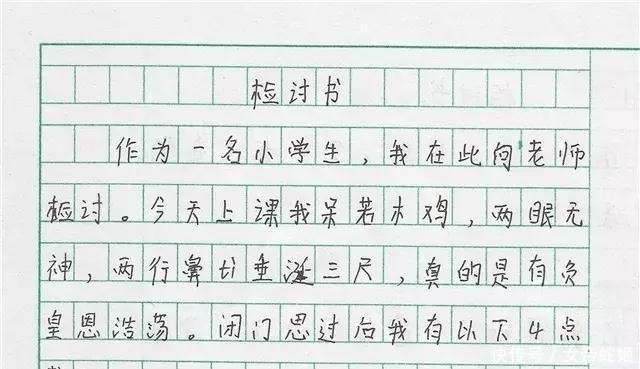 检讨书
作为一名小学生，我在此向老师
检讨。今天上课我呆若木鸡，两眼无
神，两行鼻ti垂涎三尺，真的是有负
皇恩浩荡。闭门思过后我有以下4点
快传号／女帝蛇姬